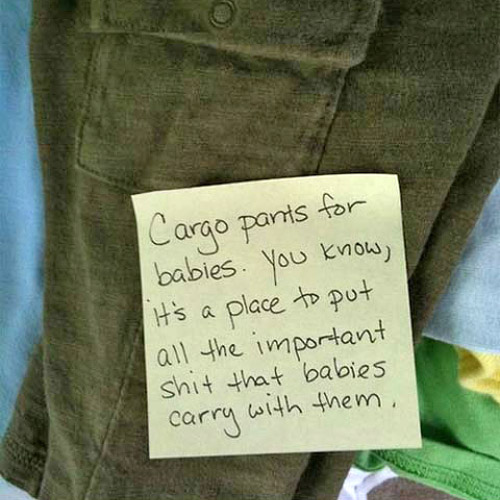 Cargo pants for
babies. You know,
it's a place to put
all the important
shit that babies
carry with them.